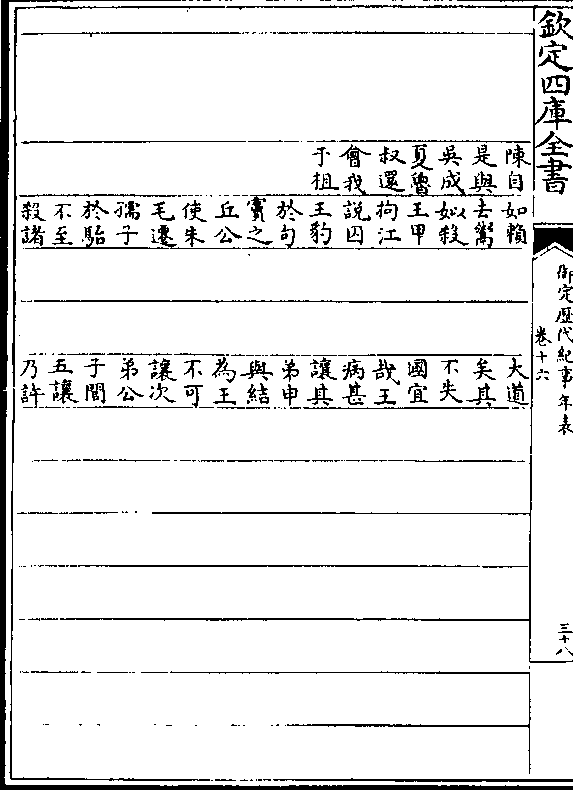 欽定四庫全書
御定歷代紀事年表
卷十六
三十八
陳自
是與
吳成
夏魯
叔還
會我
于柤
如賴
去鬻
姒殺
王甲
拘江
說囚
王豹
於句
竇之
丘公
使朱
毛遷
孺子
於駘
不至
殺諸
大道
矣其
不失
國宜
哉王
病甚
讓其
弟申
與結
為王
不可
讓次
弟公
子閭
五讓
乃許